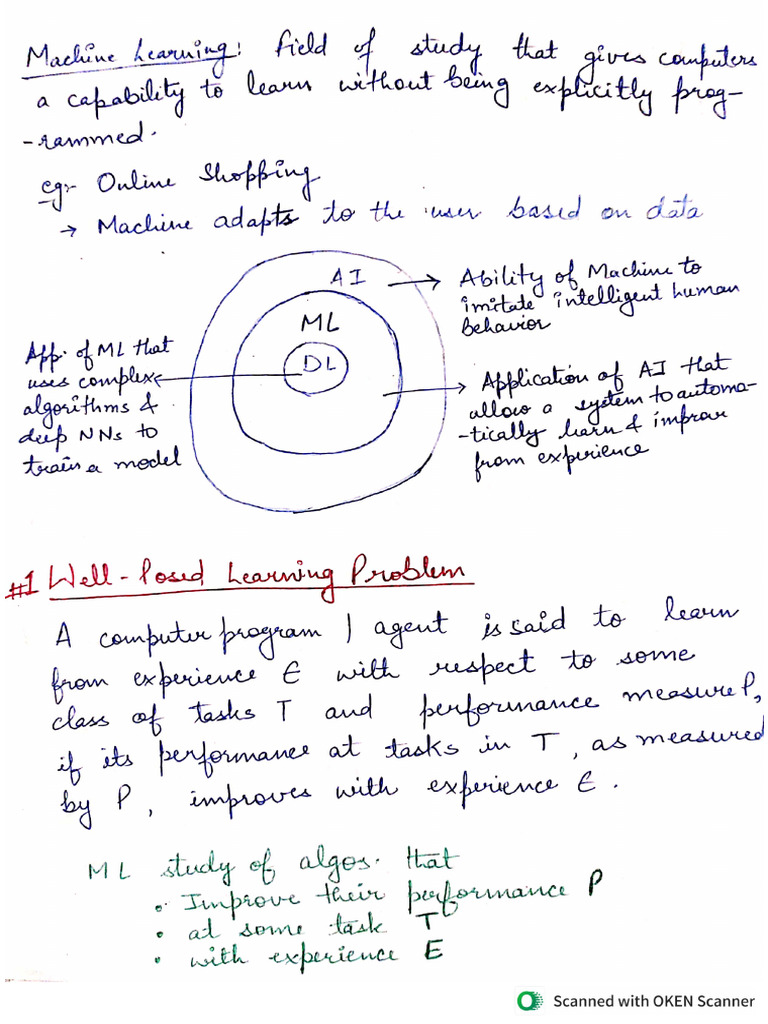 Machine Learning: field of study that gives computers
a capability to learn without being explicitly prog-
-rammed.
eg:- Online Shopping
→ Machine adapts to the user based on data
AI → Ability of Machine to
imitate intelligent human
behavior
ML
DL
App. of ML that
uses complex
algorithms &
deep NNs to
train a model
→ Application of AI that
allow a system to automa-
-tically learn & improve
from experience
#1 Well-Posed Learning Problem
A computer program / agent is said to learn
from experience E with respect to some
class of tasks T and performance measure P,
if its performance at tasks in T, as measured
by P, improves with experience E.
ML study of algos. that
• Improve their performance P
• at some task T
• with experience E
Scanned with OKEN Scanner